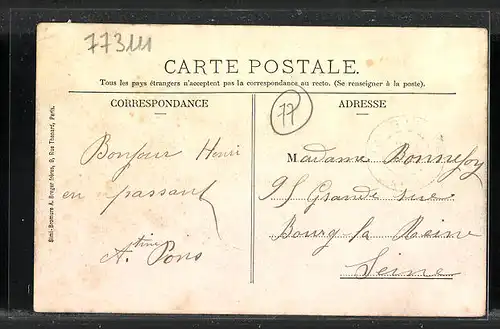 77311
CARTE POSTALE.
Tous les pays étrangers n'acceptent pas la correspondance au recto. (Se renseigner à la poste).
CORRESPONDANCE
ADRESSE
77
Bonjour Henri
en passant
A.tine Pons
Madame Bonnefoy
95 Grande rue
Bourg la Reine
Seine
Simili-Bromure A. Breger frères, 9, Rue Thénard, Paris.